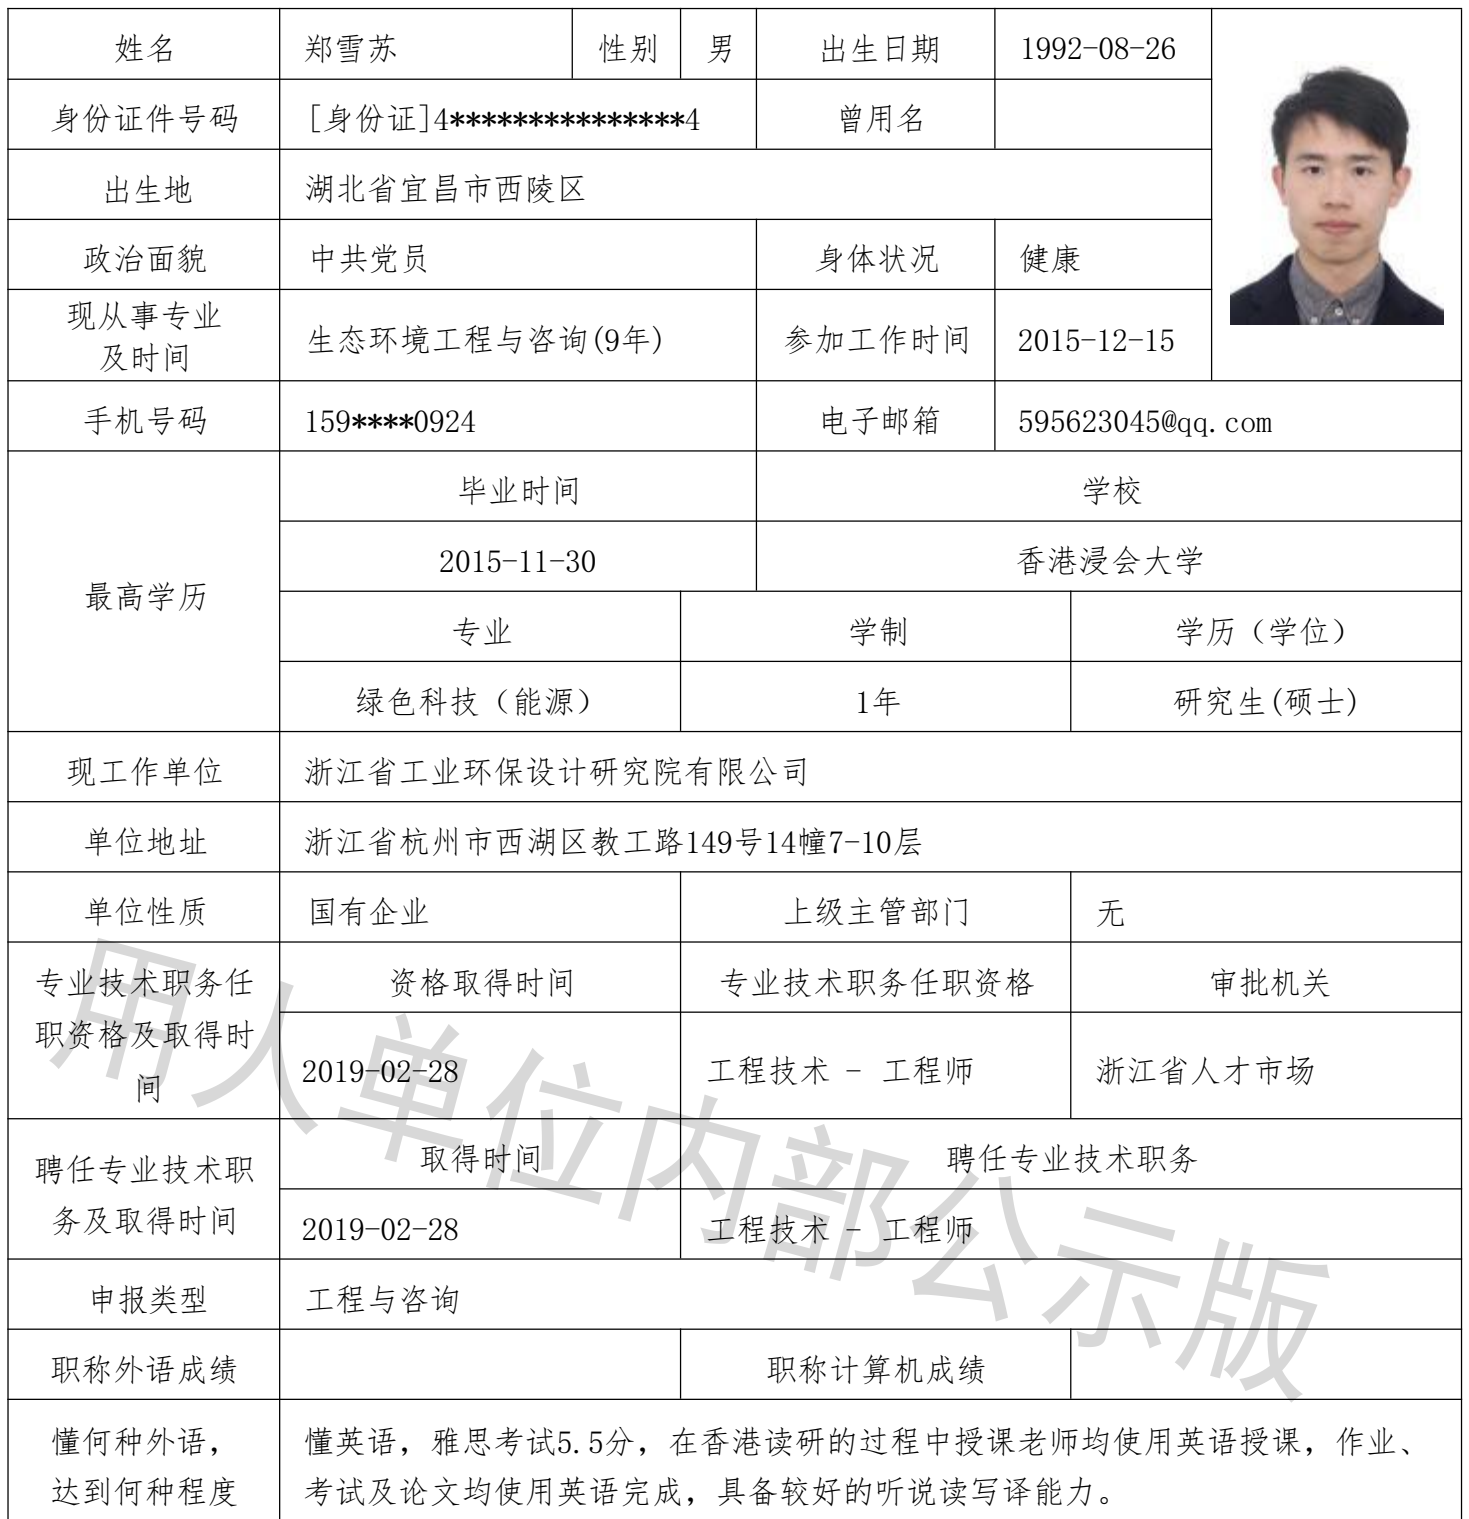 姓名 郑雪苏 性别 男 出生日期 1992-08-26
身份证件号码 [身份证]4***************4 曾用名
出生地 湖北省宜昌市西陵区
政治面貌 中共党员 身体状况 健康
现从事专业
及时间 生态环境工程与咨询(9年) 参加工作时间 2015-12-15
手机号码 159****0924 电子邮箱 595623045@qq.com
最高学历
毕业时间 学校
2015-11-30 香港浸会大学
专业 学制 学历（学位）
绿色科技（能源） 1年 研究生(硕士)
现工作单位 浙江省工业环保设计研究院有限公司
单位地址 浙江省杭州市西湖区教工路149号14幢7-10层
单位性质 国有企业 上级主管部门 无
专业技术职务任
职资格及取得时
间
资格取得时间 专业技术职务任职资格 审批机关
2019-02-28 工程技术 - 工程师 浙江省人才市场
聘任专业技术职
务及取得时间
取得时间 聘任专业技术职务
2019-02-28 工程技术 - 工程师
申报类型 工程与咨询
职称外语成绩 职称计算机成绩
懂何种外语，
达到何种程度
懂英语，雅思考试5.5分，在香港读研的过程中授课老师均使用英语授课，作业、
考试及论文均使用英语完成，具备较好的听说读写译能力。
用人单位内部公示版